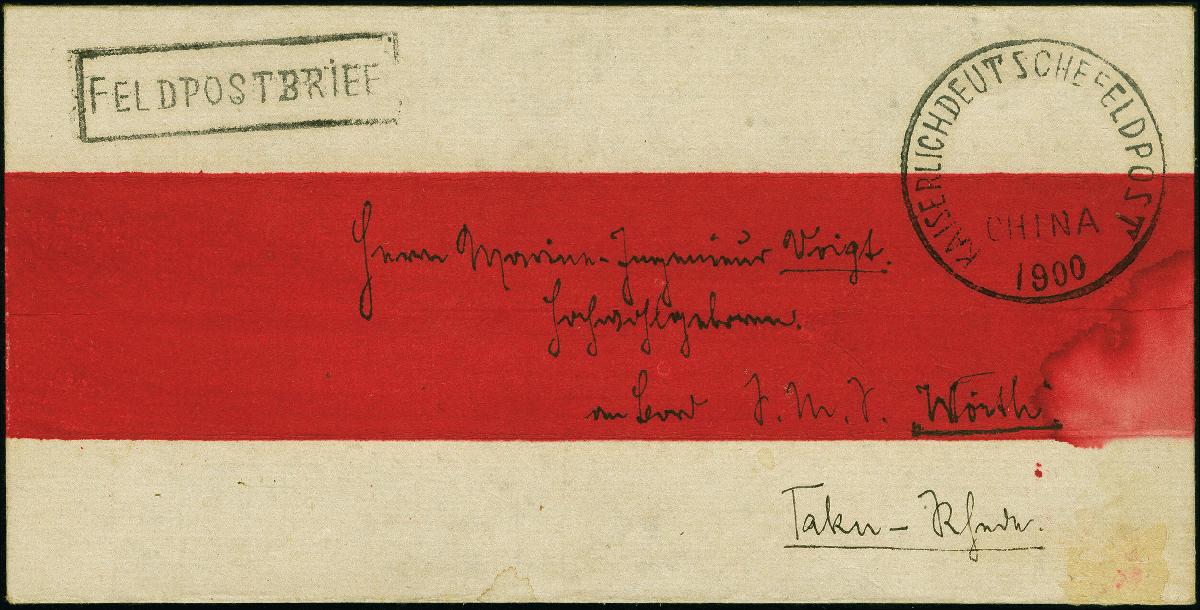 FELDPOSTBRIEF
KAISERLICH DEUTSCHE FELDPOST
CHINA
1900
Herrn Marine-Ingenieur Voigt.
Hochwohlgeboren.
an Bord S.M.S. Wörth.
Taku - Rhede.